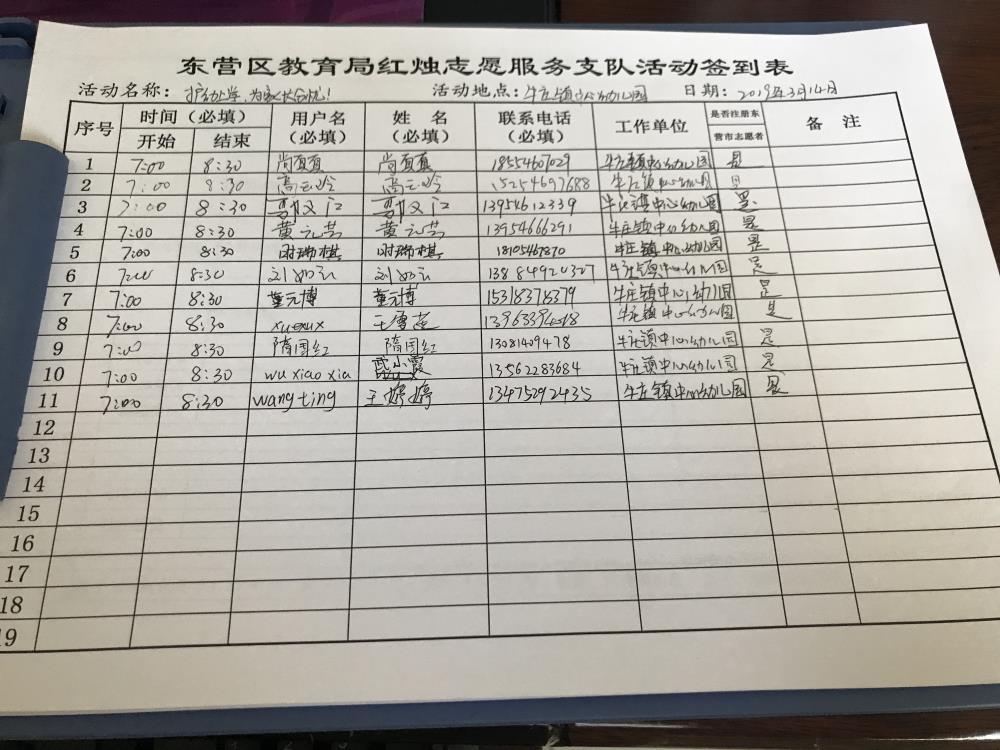 东营区教育局红烛志愿服务支队活动签到表
活动名称：护幼上学，为家长分忧！ 活动地点：牛庄镇中心幼儿园 日期：2019年3月14日
序号 时间（必填） 用户名（必填） 姓 名（必填） 联系电话（必填） 工作单位 是否注册东营市志愿者 备 注
开始 结束
1 7:00 8:30 尚真真 尚真真 18554607029 牛庄镇中心幼儿园 是
2 7:00 8:30 高云玲 高云玲 15254697688 牛庄镇中心幼儿园 是
3 7:00 8:30 13954612339 牛庄镇中心幼儿园 是
4 7:00 8:30 黄元芸 黄元芸 13954666291 牛庄镇中心幼儿园 是
5 7:00 8:30 时瑞棋 时瑞棋 牛庄镇中心幼儿园 是
6 7:00 8:30 刘如云 刘如云 牛庄镇中心幼儿园 是
7 7:00 8:30 董元博 董元博 15318378379 牛庄镇中心幼儿园 是
8 7:00 8:30 xuexux 王雪莲 牛庄镇中心幼儿园 是
9 7:00 8:30 隋国红 隋国红 13081409478 牛庄镇中心幼儿园 是
10 7:00 8:30 wuxiaoxia 武小霞 13562283684 牛庄镇中心幼儿园 是
11 7:00 8:30 wangting 王婷婷 13475292435 牛庄镇中心幼儿园 是
12
13
14
15
16
17
18
19